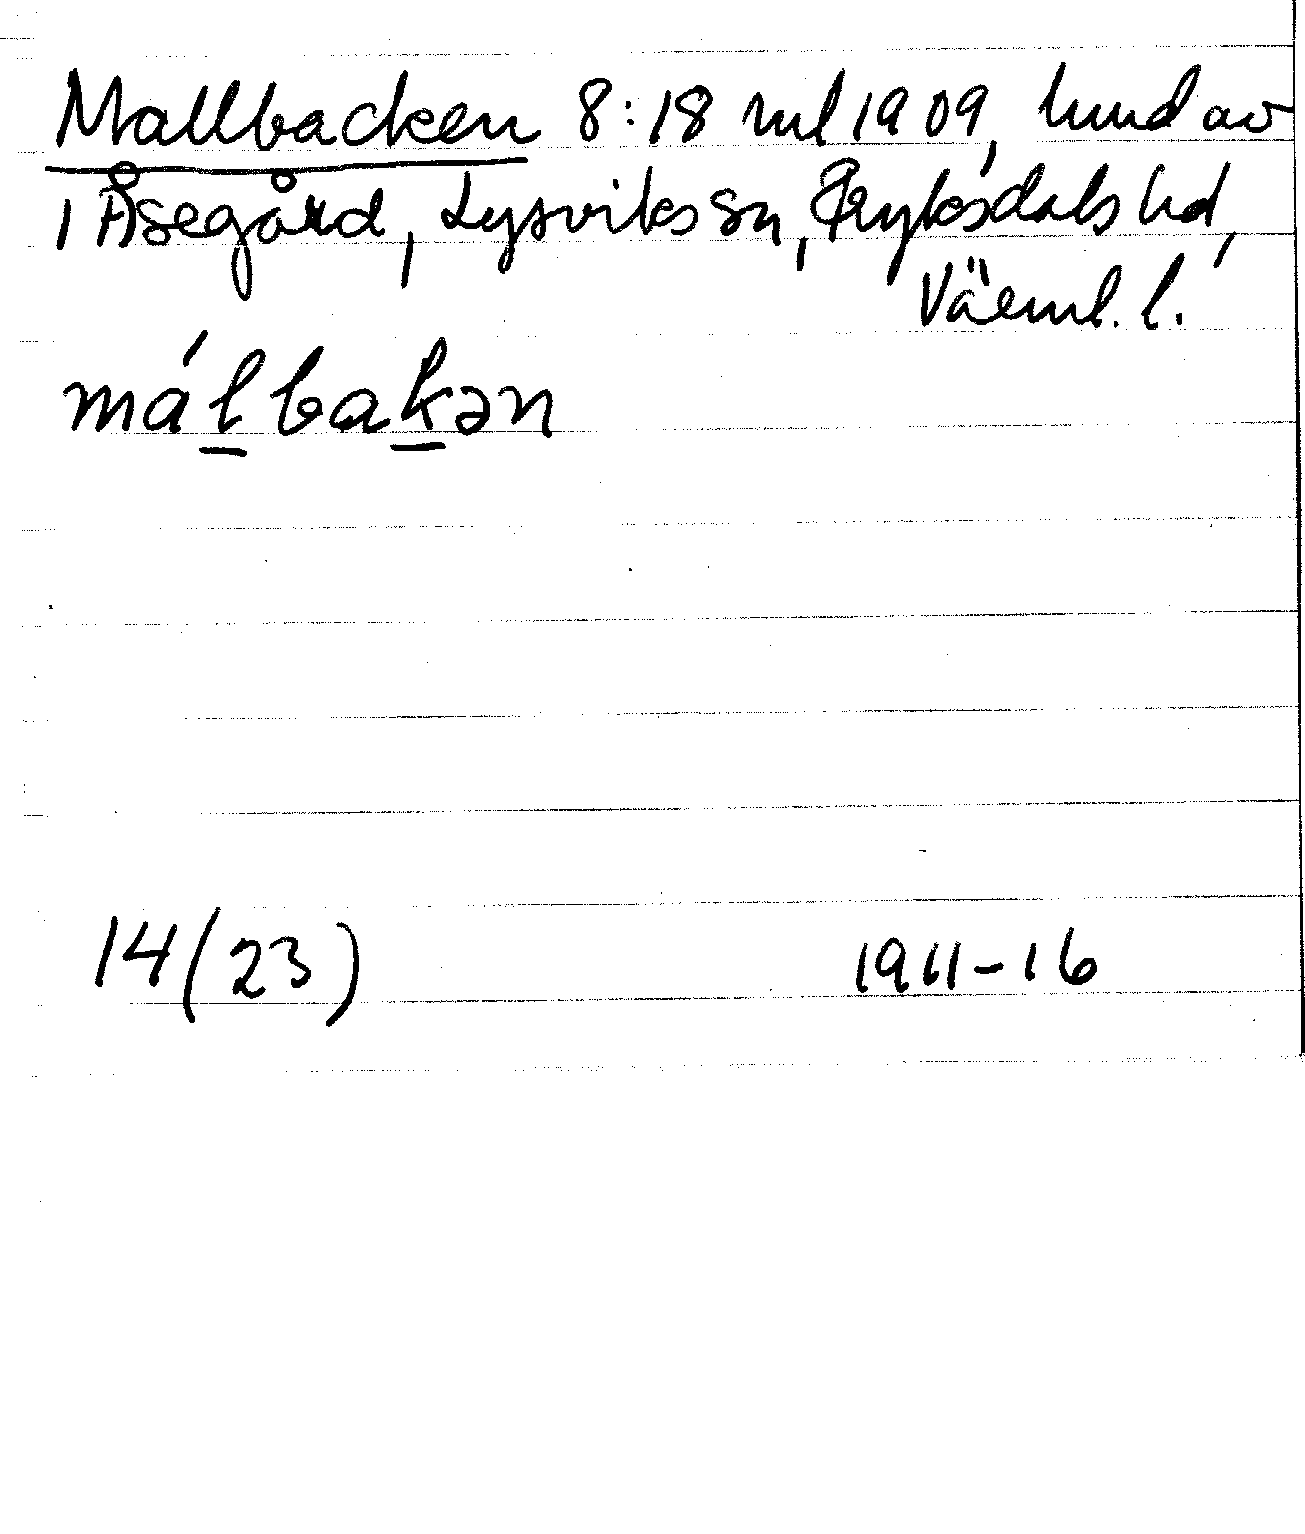 Mallbacken 8:18 ml 1909, hmd av
1 Åsegård, Lysviks sn, Fryksdals hd,
Värml. l.
málbakən
14(23) 1911-16